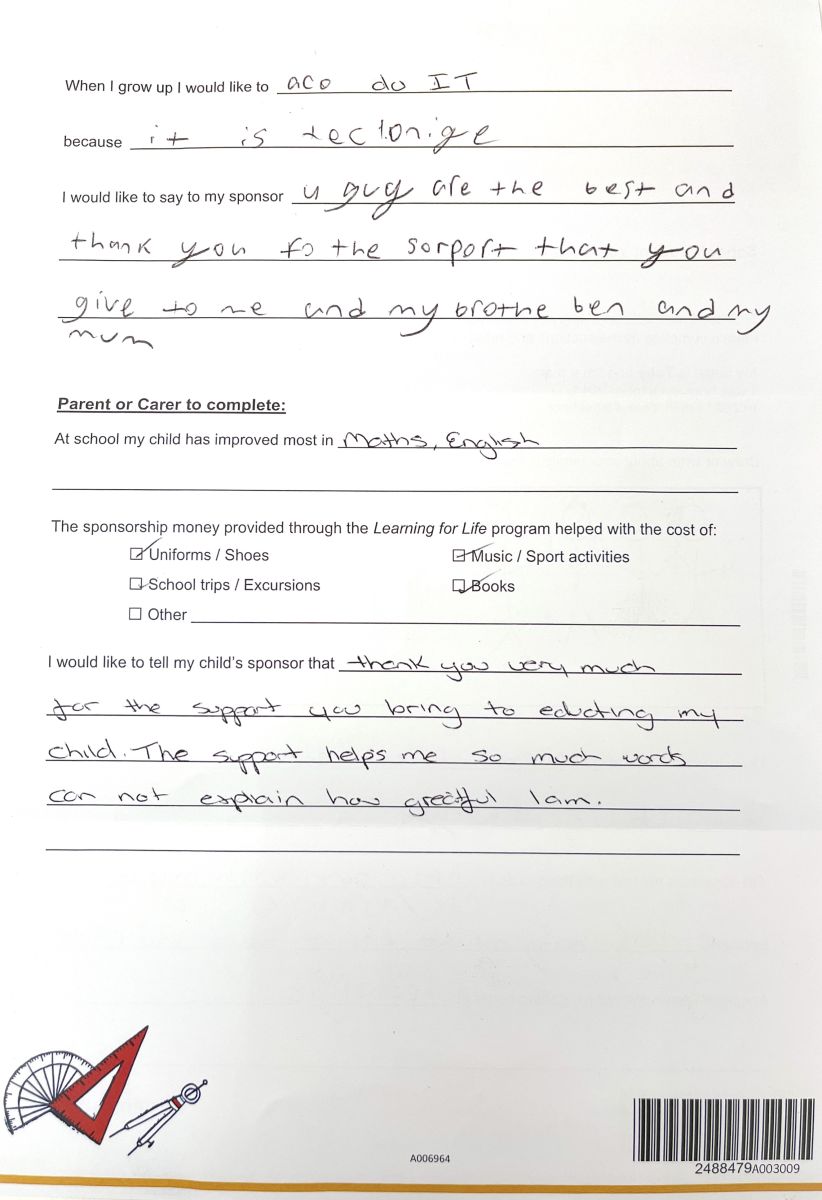 When I grow up I would like to aco do IT
because it is teclonige
I would like to say to my sponsor u guy are the best and
thank you fo the sorport that you
give to me and my brothe ben and my
mum
Parent or Carer to complete:
At school my child has improved most in Maths, English
The sponsorship money provided through the Learning for Life program helped with the cost of:
☑ Uniforms / Shoes ☑ Music / Sport activities
☑ School trips / Excursions ☑ Books
☐ Other
I would like to tell my child's sponsor that thank you very much
for the support you bring to educting my
child. The support helps me so much words
can not explain how greatful I am.
A006964
2488479A003009